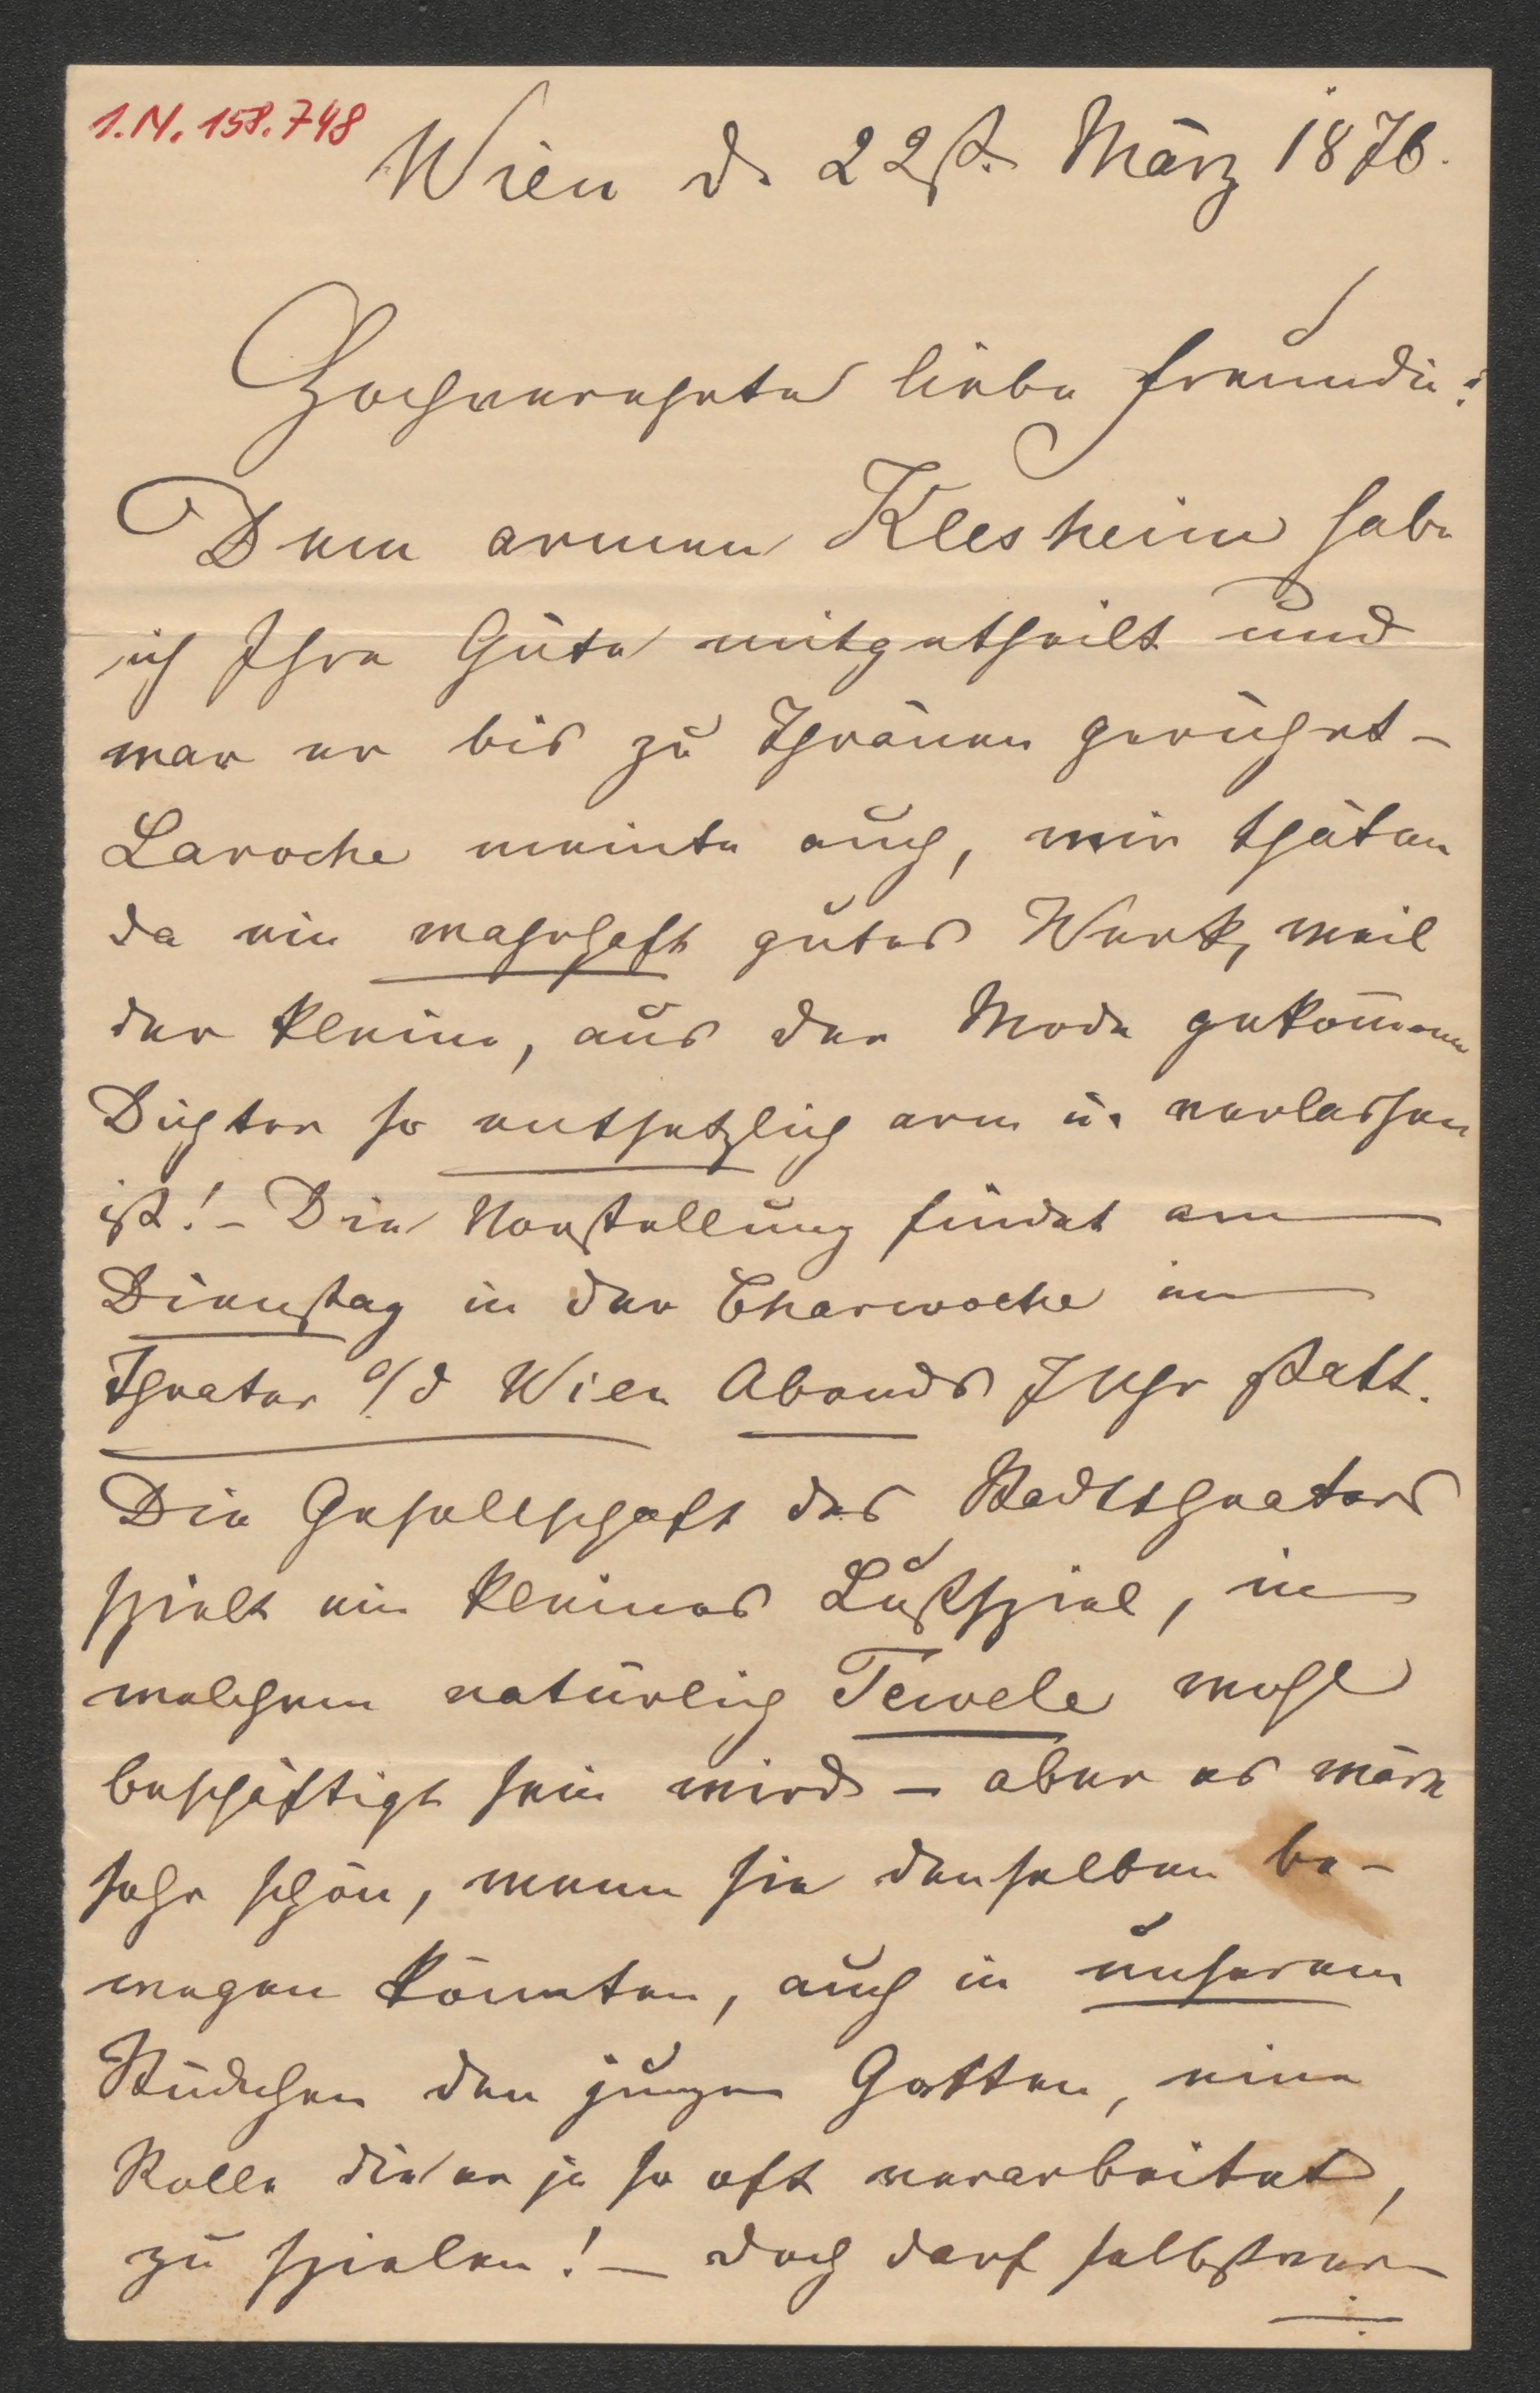 I.N. 158.748
Wien d. 22st. März 1876.
Hochverehrte liebe Freundin!
Dem armen Klesheim habe
ich Ihre Güte mitgetheilt und
war er bis zu Thränen gerührt –
Laroche meinte auch, wir thäten
da ein wahrhaft gutes Werk, weil
der kleine, aus der Mode gekom̄ene
Dichter so entsetzlich arm u. verlassen
ist! – Die Vorstellung findet am
Dienstag in der Charwoche im
Theater a/d Wien Abends 7 Uhr statt.
Die Gesellschaft des Stadttheaters
spielt ein kleines Lustspiel, in
welchem natürlich Tewele wohl
beschäftigt sein wird – aber es wäre
sehr schön, wenn sie denselben be-
wegen könnten, auch in unserem
Stückchen den jungen Gatten, eine
Rolle die er ja so oft verarbeitet,
zu spielen! – doch darf selbstver-